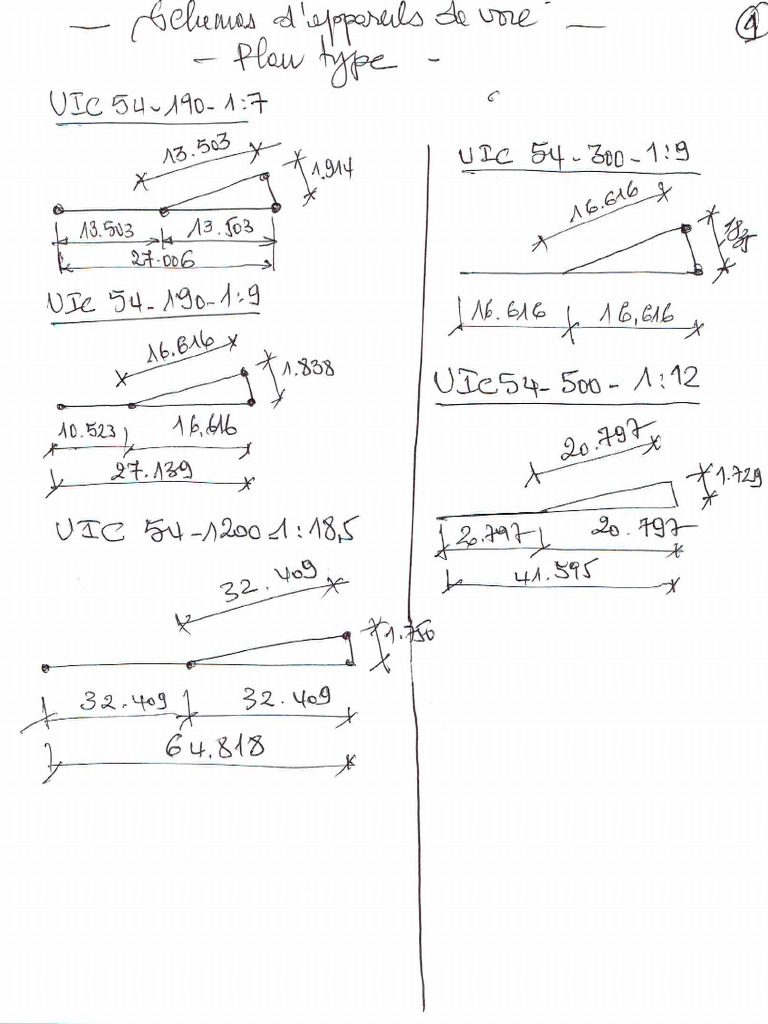 — Schemas d'appareils de voie —
①
- Plan type -
UIC 54-190-1:7
13.503
1.914
13.503
13.503
27.006
UIC 54-190-1:9
16.616
1.838
10.523
16,616
27.139
UIC 54-1200-1:18,5
32.409
1.750
32.409
32.409
64.818
UIC 54-300-1:9
16.616
16.616
16,616
UIC 54-500-1:12
20.797
1.729
20.797
41.595